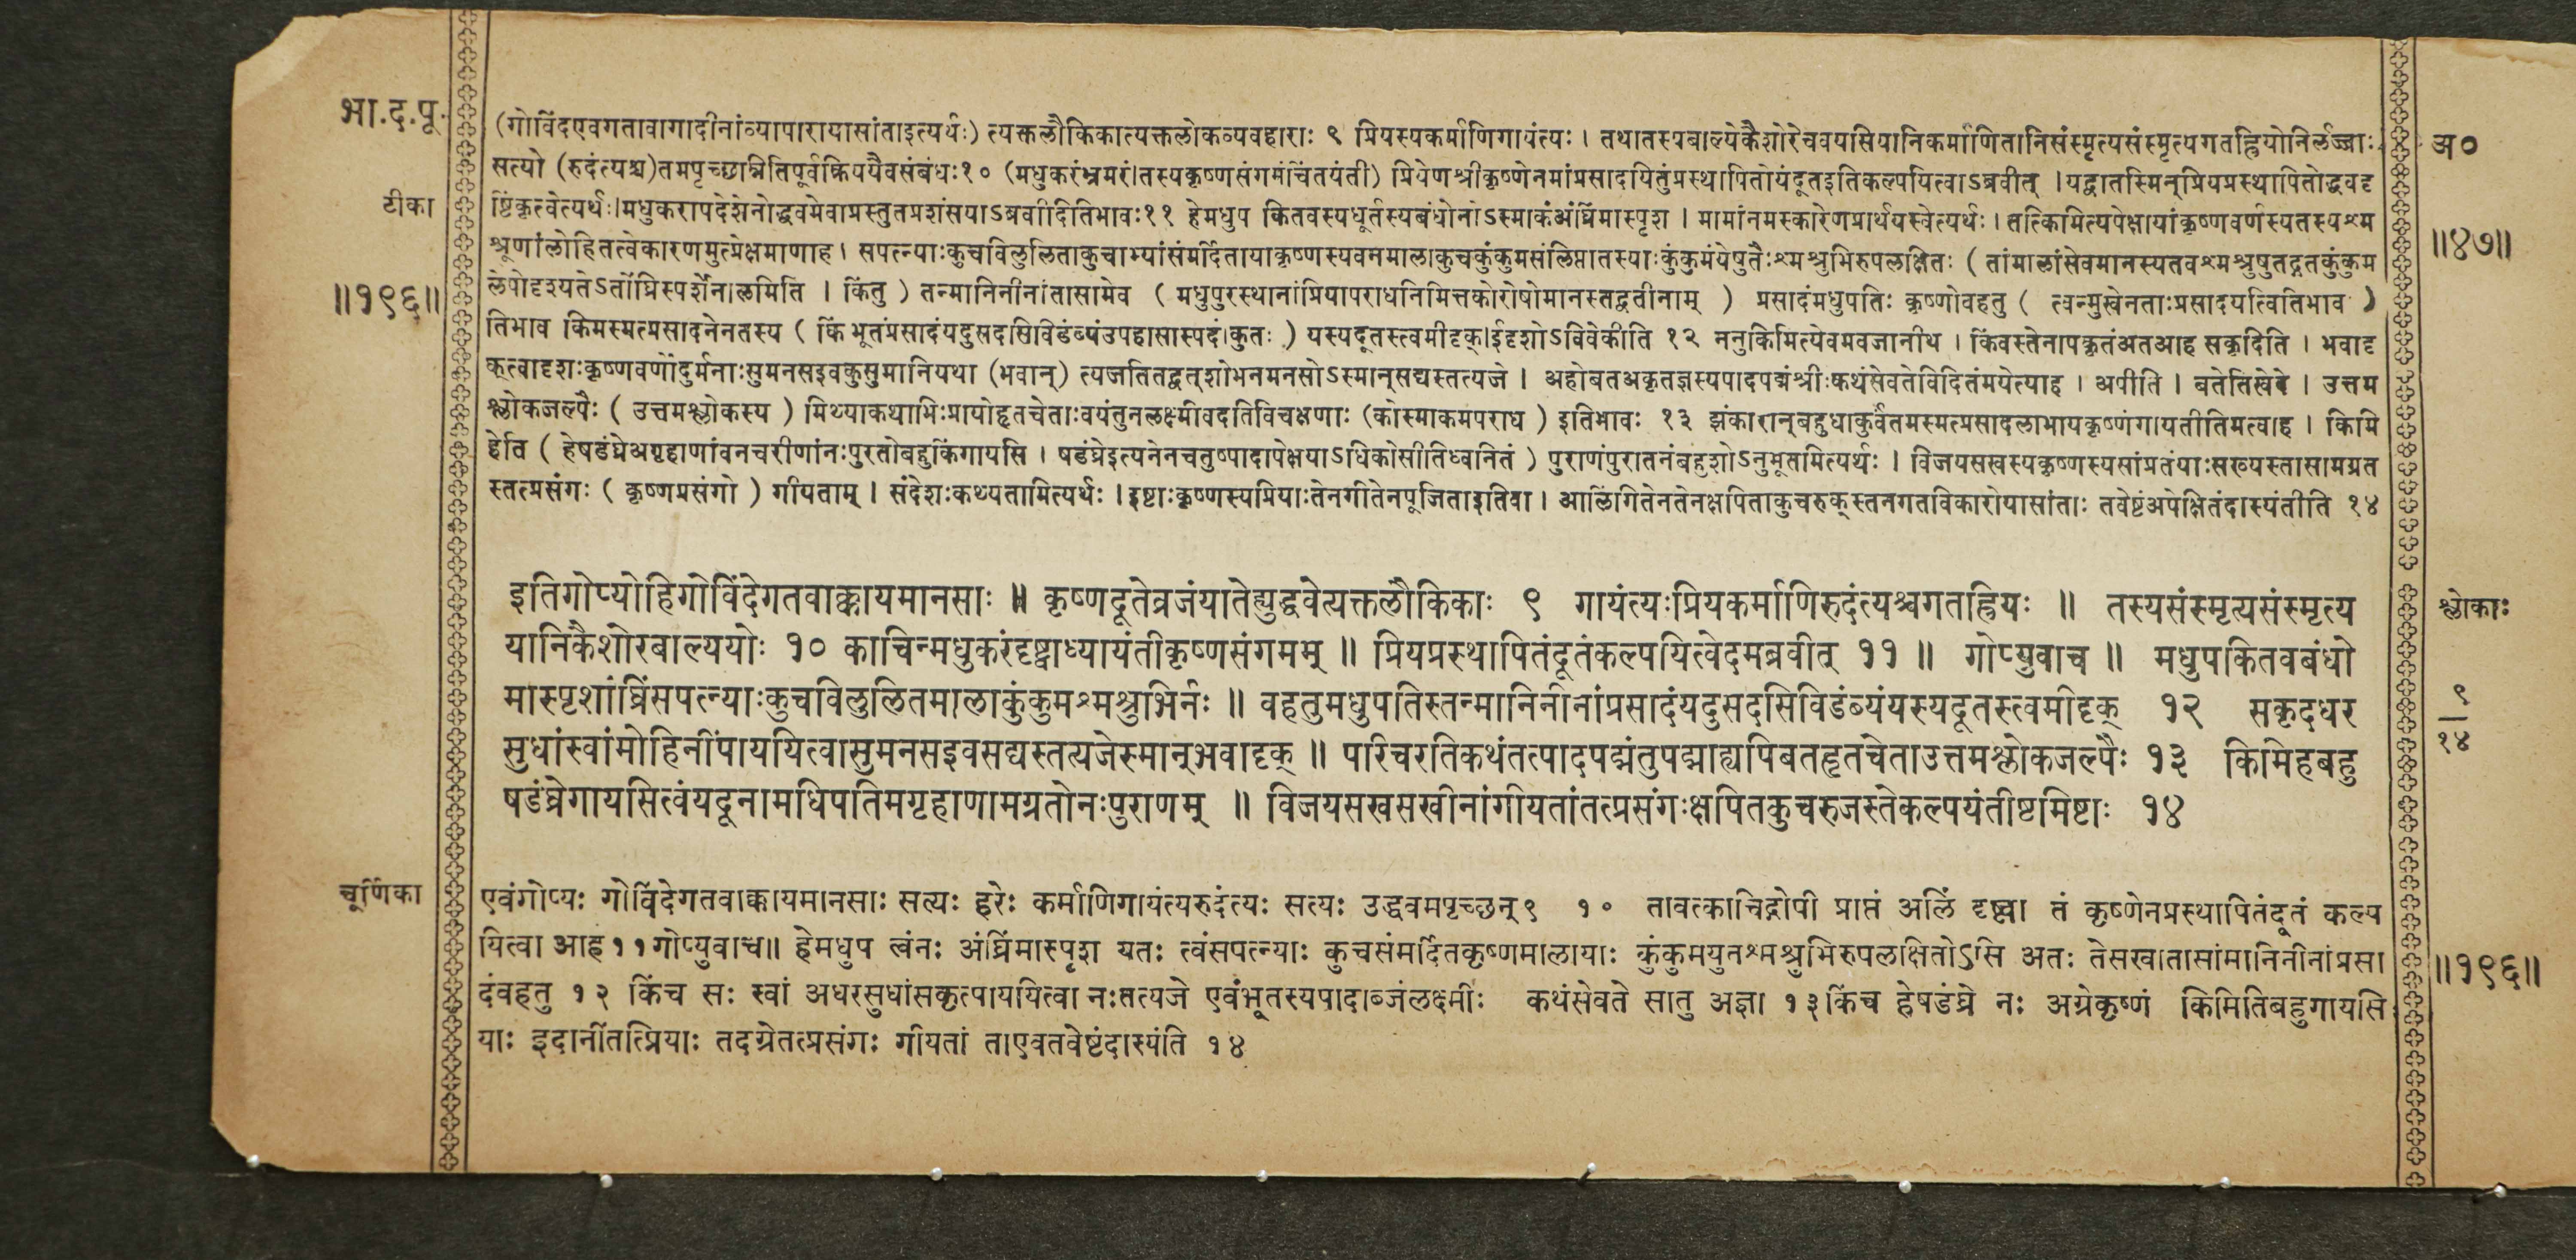 भा.द.पू.
टीका
॥१९६॥
(गोविंदएवगतावागादीनांव्यापारायासांताइत्यर्थः) त्यक्तलौकिकात्यक्तलोकव्यवहाराः ९ प्रियस्यकर्माणिगायंत्यः । तथातस्यबाल्येकैशोरेचवयसियानिकर्माणितानिसंस्मृत्यसंस्मृत्यगतह्रियोनिर्लज्जाः
सत्यो (रुदंत्यश्च)तमपृच्छन्नितिपूर्वक्रिययैवसंबंधः१० (मधुकरंभ्रमरं।तस्यकृष्णसंगमंचिंतयंती) प्रियेणश्रीकृष्णेनमांप्रसादयितुंप्रस्थापितोयंदूतइतिकल्पयित्वाऽब्रवीत् ।यद्वातस्मिन्प्रियप्रस्थापितोद्धवदृ
ष्टिंकृत्वेत्यर्थः।मधुकरापदेशेनोद्धवमेवाप्रस्तुतप्रशंसयाऽब्रवीदितिभावः११ हेमधुप कितवस्यधूर्तस्यबंधोनोऽस्माकंअंघ्रिंमास्पृश । मामांनमस्कारेणप्रार्थयस्वेत्यर्थः । तत्किमित्यपेक्षायांकृष्णवर्णस्यतस्यश्म
श्रूणांलोहितत्वेकारणमुत्प्रेक्षमाणाह । सपत्न्याःकुचविलुलिताकुचाभ्यांसंमर्दितायाकृष्णस्यवनमालाकुचकुंकुमसंलिप्तातस्याःकुंकुमंयेषुतैःश्मश्रुभिरुपलक्षितः ( तांमालांसेवमानस्यतवश्मश्रुषुतद्गतकुंकुम
लेपोदृश्यतेऽतोंघ्रिस्पर्शेनालमिति । किंतु ) तन्मानिनीनांतासामेव ( मधुपुरस्थानांप्रियापराधनिमित्तकोरोषोमानस्तद्वतीनाम् ) प्रसादंमधुपतिः कृष्णोवहतु ( त्वन्मुखेनताःप्रसादयत्वितिभाव )
तिभाव किमस्मत्प्रसादनेनतस्य ( किं भूतंप्रसादंयदुसदसिविडंब्यंउपहासास्पदं।कुतः ) यस्यदूतस्त्वमीदृक्।ईदृशोऽविवेकीति १२ ननुकिमित्येवमवजानीथ । किंवस्तेनापकृतंअतआह सकृदिति । भवादृ
क्त्वादृशःकृष्णवर्णोदुर्मनाःसुमनसइवकुसुमानियथा (भवान्) त्यजतितद्वत्शोभनमनसोऽस्मान्सद्यस्तत्यजे । अहोबतअकृतज्ञस्यपादपद्मंश्रीःकथंसेवतेविदितंमयेत्याह । अपीति । बतेतिखेदे । उत्तम
श्लोकजल्पैः ( उत्तमश्लोकस्य ) मिथ्याकथाभिःप्रायोहृतचेताःवयंतुनलक्ष्मीवदतिविचक्षणाः (कोस्माकमपराध ) इतिभावः १३ झंकारान्बहुधाकुर्वंतमस्मत्प्रसादलाभायकृष्णंगायतीतिमत्वाह । किमि
हेति ( हेषडंघ्रेअगृहाणांवनचरीणांनःपुरतोबहुकिंगायसि । षडंघ्रेइत्यनेनचतुष्पादापेक्षयाऽधिकोसीतिध्वनितं ) पुराणंपुरातनंबहुशोऽनुभूतमित्यर्थः । विजयसखस्यकृष्णस्यसांप्रतंयाःसख्यस्तासामग्रत
स्तत्प्रसंगः ( कृष्णप्रसंगो ) गीयताम् । संदेशःकथ्यतामित्यर्थः ।इष्टाःकृष्णस्यप्रियाःतेनगीतेनपूजिताइतिवा । आलिंगितेनतेनक्षपिताकुचरुक्स्तनगतविकारोयासांताः तवेष्टंअपेक्षितंदास्यंतीति १४
अ०
॥४७॥
इतिगोप्योहिगोविंदेगतवाक्कायमानसाः ॥ कृष्णदूतेव्रजंयातेह्युद्धवेत्यक्तलौकिकाः ९ गायंत्यःप्रियकर्माणिरुदंत्यश्चगतह्रियः ॥ तस्यसंस्मृत्यसंस्मृत्य
यानिकैशोरबाल्ययोः १० काचिन्मधुकरंदृष्ट्वाध्यायंतीकृष्णसंगमम् ॥ प्रियप्रस्थापितंदूतंकल्पयित्वेदमब्रवीत् ११ ॥ गोप्युवाच ॥ मधुपकितवबंधो
मास्पृशांघ्रिंसपत्न्याःकुचविलुलितमालाकुंकुमश्मश्रुभिर्नः ॥ वहतुमधुपतिस्तन्मानिनीनांप्रसादंयदुसदसिविडंब्यंयस्यदूतस्त्वमीदृक् १२ सकृदधर
सुधांस्वांमोहिनींपाययित्वासुमनसइवसद्यस्तत्यजेस्मान्भवादृक् ॥ परिचरतिकथंतत्पादपद्मंतुपद्माह्यपिबतहृतचेताउत्तमश्लोकजल्पैः १३ किमिहबहु
षडंघ्रेगायसित्वंयदूनामधिपतिमगृहाणामग्रतोनःपुराणम् ॥ विजयसखसखीनांगीयतांतत्प्रसंगःक्षपितकुचरुजस्तेकल्पयंतीष्टमिष्टाः १४
श्लोकाः
९
१४
चूर्णिका
एवंगोप्यः गोविंदेगतवाक्कायमानसाः सत्यः हरेः कर्माणिगायंत्यरुदंत्यः सत्यः उद्धवमपृच्छन्९ १० तावत्काचिद्गोपी प्राप्तं अलिं दृष्ट्वा तं कृष्णेनप्रस्थापितंदूतं कल्प
यित्वा आह११गोप्युवाच॥ हेमधुप त्वंनः अंघ्रिंमास्पृश यतः त्वंसपत्न्याः कुचसंमर्दितकृष्णमालायाः कुंकुमयुतश्मश्रुभिरुपलक्षितोऽसि अतः तेसखातासांमानिनीनांप्रसा
दंवहतु १२ किंच सः स्वां अधरसुधांसकृत्पाययित्वा नःतत्यजे एवंभूतस्यपादाब्जंलक्ष्मीः कथंसेवते सातु अज्ञा १३किंच हेषडंघ्रे नः अग्रेकृष्णं किमितिबहुगायसि
याः इदानींतत्प्रियाः तदग्रेतत्प्रसंगः गीयतां ताएवतवेष्टंदास्यंति १४
॥१९६॥